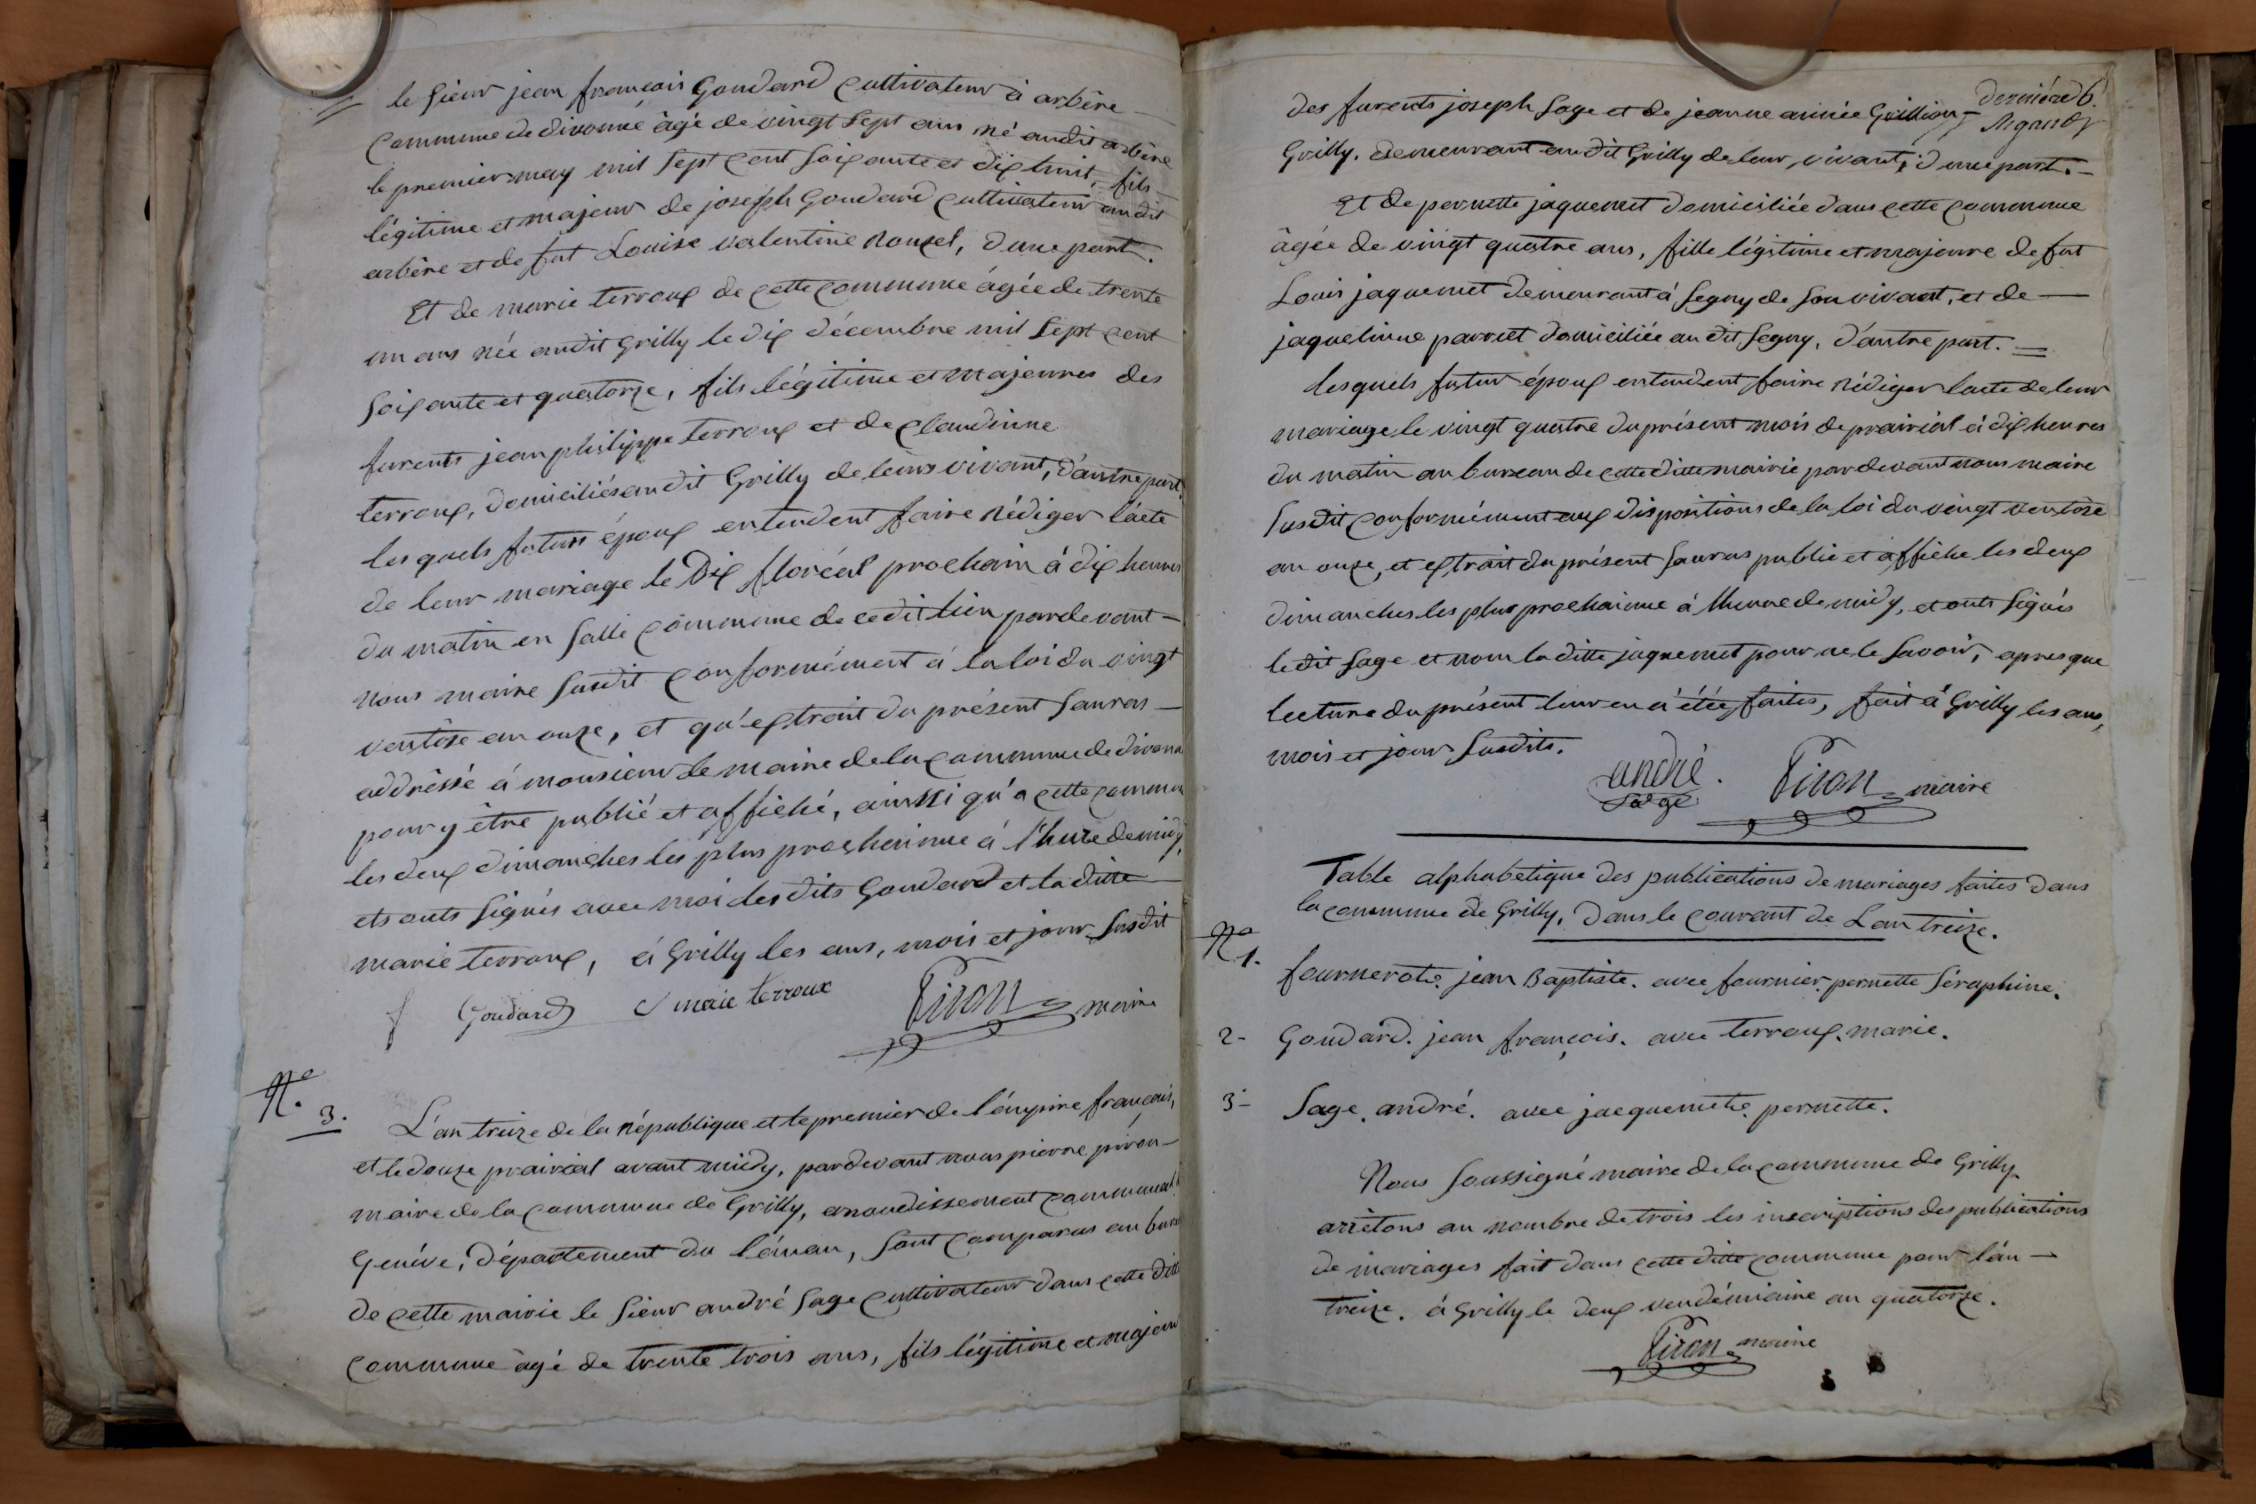 le sieur jean françois Goudard cultivateur à arbère
commune de divonne âgé de vingt sept ans, né audit arbère
le premier may mil sept cent soixante et dix huit, fils
légitime et majeur de joseph Goudard cultivateur audit
arbère et de fut Louise valentine Rouzel, d'une part.
Et de marie terroux de cette commune âgée de trente
un ans née audit Grilly le dix décembre mil sept cent
soixante et quatorze, fils légitime et majeures des
furents jean philippe terroux et de claudinne
terroux, domiciliés audit Grilly de leurs vivant, d'autre part.
les quels futurs époux entendent faire rédiger l'acte
de leur mariage le Dix floréal prochain à dix heures
du matin en salle commune de cedit lieu pardevant
nous maire susdit conformément à la loi du vingt
ventôse an onze, et qu'extrait du présent sauras
addréssé à monsieur le maire de la commune de divonne
pour y être publié et affiché, ainssi qu'a cette commune
les deux dimanches les plus prochainne à l'heure de midy,
ets onts signés avec moi lesdits Goudard et la ditte
marie terroux, à Grilly les ans, mois et jour susdit
Goudard marie terroux Piron maire
N.° 3. L'an treize de la république et le premier de l'émpire français,
et le douze prairéal avant midy, pardevant nous pierre piron
maire de la commune de Grilly, arroudissement communal
Genève, département du léman, sont comparus au bureau
de cette mairie le sieur andré sage cultivateur dans cette ditte
commune âgé de trente trois ans, fils légitime et majeur
dernière 6.
des furents joseph sage et de jeanne aimée Grillion
Grilly. demeurant audit Grilly de leur vivant, d'une part.
Et de pernette jaquemet domiciliée dans cette commune
âgée de vingt quatre ans, fille légitime et majeure de fut
Louis jaquemet demeurant à segny de son vivant, et de
jaquelinne parriet domiciliée au dit segny, d'autre part.
lesquels futur époux entendent faire rédiger lacte de leur
mariage le vingt quatre du présent mois de prairéal à dix heures
du matin au bureau de cette ditte mairie pardevant nous maire
susdit conformément aux dispositions de la loi du vingt ventôse
an onze, et extrait du présent sauras publie et affiche les deux
dimanches les plus prochainne à lheure de midy, et onts signés
le dit sage et nom la ditte jaquemet pour ne le savoir, apres que
lecture du présent leur en a étéé faites, fait à Grilly les ans,
mois et jour susdits.
andré sage Piron maire
Table alphabetique des publications de mariages faites dans
la commune de Grilly, dans le courant de Lan treize.
N° 1. fournerote. jean Baptiste. avec fournier. pernette séraphine.
2- Goudard. jean françois. avec terroux. marie.
3- Sage. andré. avec jacquemete. pernette.
Nous soussigné maire de la commune de Grilly
arrêtons au nombre de trois les inscriptions des publications
de mariages fait dans cette ditte commune pour l'an
treize. à Grilly le deux vendémiaire an quatorze.
Piron maire